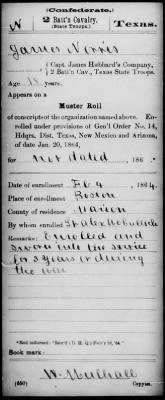 (Confederate.)
N 2 Batt'y Cavalry, Texas.
(State Troops.)
James Norris
{ Capt. James Hubbard's Company,
{ 2 Batt'n Cav., Texas State Troops.
Age 18 years.
Appears on a
Muster Roll
of conscripts of the organization named above. En-
rolled under provisions of Gen'l Order No. 14,
Hdqrs. Dist. Texas, New Mexico and Arizona,
of date Jan. 20, 1864,
for not dated, 186 .
Date of enrollment Feb 4, 1864.
Place of enrollment Boston
County of residence Marion
By whom enrolled
Remarks: Enrolled and
sworn into the service
for 3 years or during
the war
Book mark:
W. Mulhall
(650) Copyist.